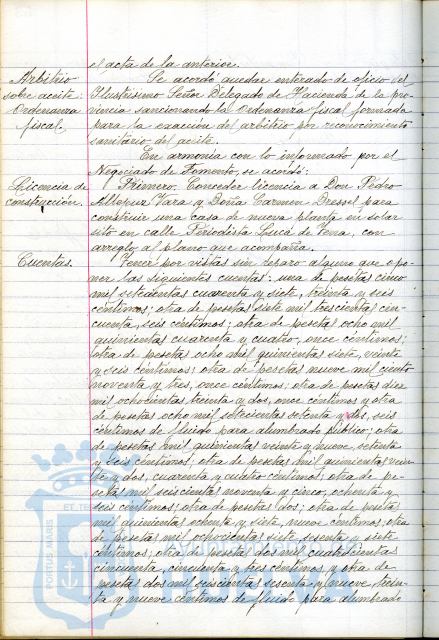 el acta de la anterior.
Arbitrio
sobre aceite:
Ordenanza
fiscal.
Se acordó quedar enterado de oficio del
Ilustrisimo Señor Delegado de Hacienda de la pro-
vincia sancionando la Ordenanza fiscal formada
para la exacción del arbitrio por reconocimiento
sanitario del aceite.
En armonia con lo informado por el
Negociado de Fomento, se acordó:
Licencia de
construcción.
Primero. Conceder licencia a Don Pedro
Vara y Doña Carmen Dressel para
construir una casa de nueva planta en solar
sito en calle Periodista Luca de Tena, con
arreglo al plano que acompaña.
Cuentas.
Tener por vistas sin reparo alguno que opo-
ner las siguientes cuentas: una de pesetas cinco
mil setecientas cuarenta y siete, treinta y seis
céntimos; otra de pesetas siete mil trescientas cin-
cuenta, seis céntimos; otra de pesetas ocho mil
quinientas cuarenta y cuatro, once céntimos;
otra de pesetas ocho mil quinientas siete, veinte
y seis céntimos; otra de pesetas nueve mil ciento
noventa y tres, once céntimos; otra de pesetas diez
mil ochocientas treinta y dos, once céntimos y otra
de pesetas ocho mil setecientas setenta y dos, seis
céntimos de fluido para alumbrado público; otra
de pesetas mil quinientas veinte y nueve, setenta
y seis céntimos; otra de pesetas mil quinientas vein-
te y dos, cuarenta y cuatro céntimos; otra de pe-
setas mil seiscientas noventa y cinco, ochenta y
seis céntimos; otra de pesetas dos; otra de pesetas
mil quinientas ochenta y siete, nueve céntimos; otra
de pesetas mil ochocientas siete, sesenta y siete
céntimos; otra de pesetas dos mil cuatrocientas
cincuenta, cincuenta y tres céntimos y otra de
pesetas dos mil seiscientas sesenta y nueve, trein-
ta y nueve céntimos de fluido para alumbrado
PORTUS MARIS
ET TE